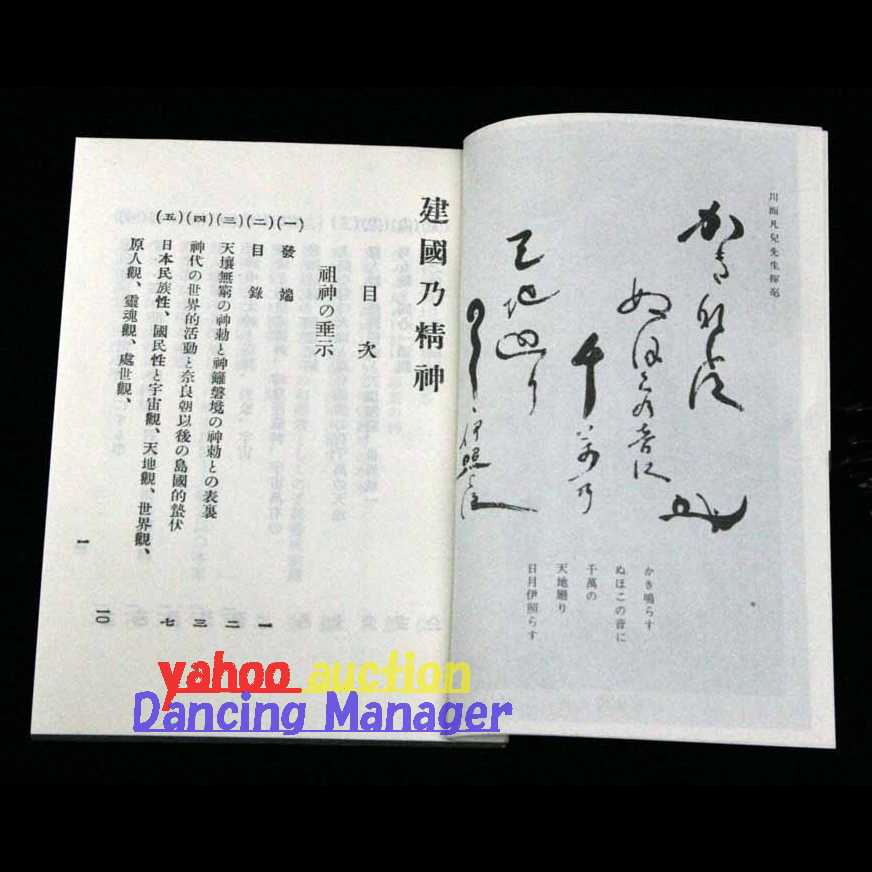 川面凡兒先生揮毫
かき鳴らす
ぬほこの音に
千萬の
天地廻り
日月伊照らす
建國乃精神
目次
祖神の垂示
(一)發端 一
(二)目錄 二
(三)天壤無窮の神勅と神籬磐境の神勅との表裏 三
(四)神代の世界的活動と奈良朝以後の島國的蟄伏 七
(五)日本民族性、國民性と宇宙觀、天地觀、世界觀、
原人觀、靈魂觀、處世觀、 一〇
一
yahoo auction
Dancing Manager